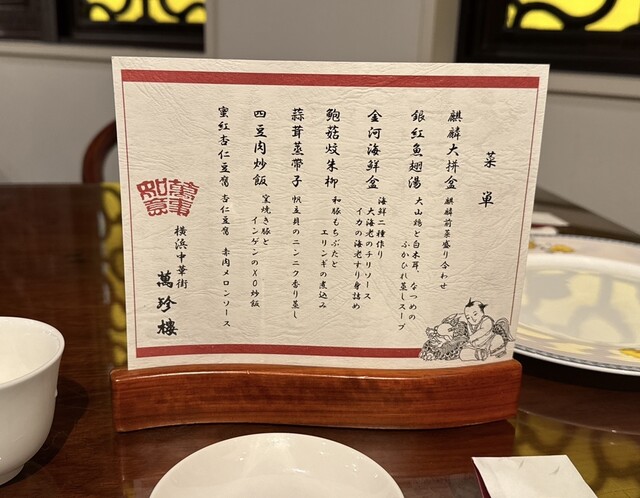 菜単
麒麟大拼盆 麒麟前菜盛り合わせ
銀紅魚翅湯 大山鶏と白木耳、なつめの
ふかひれ蒸しスープ
金河海鮮盒 海鮮二種作り
大海老のチリソース
イカの海老すり身詰め
鮑菇炆朱柳 和豚もちぶたと
エリンギの煮込み
蒜茸蒸帶子 帆立貝のニンニク香り蒸し
四豆肉炒飯 窯焼き豚と
インゲンのXO炒飯
蜜紅杏仁豆腐 杏仁豆腐 赤肉メロンソース
萬事如意
横浜中華街
萬珍樓